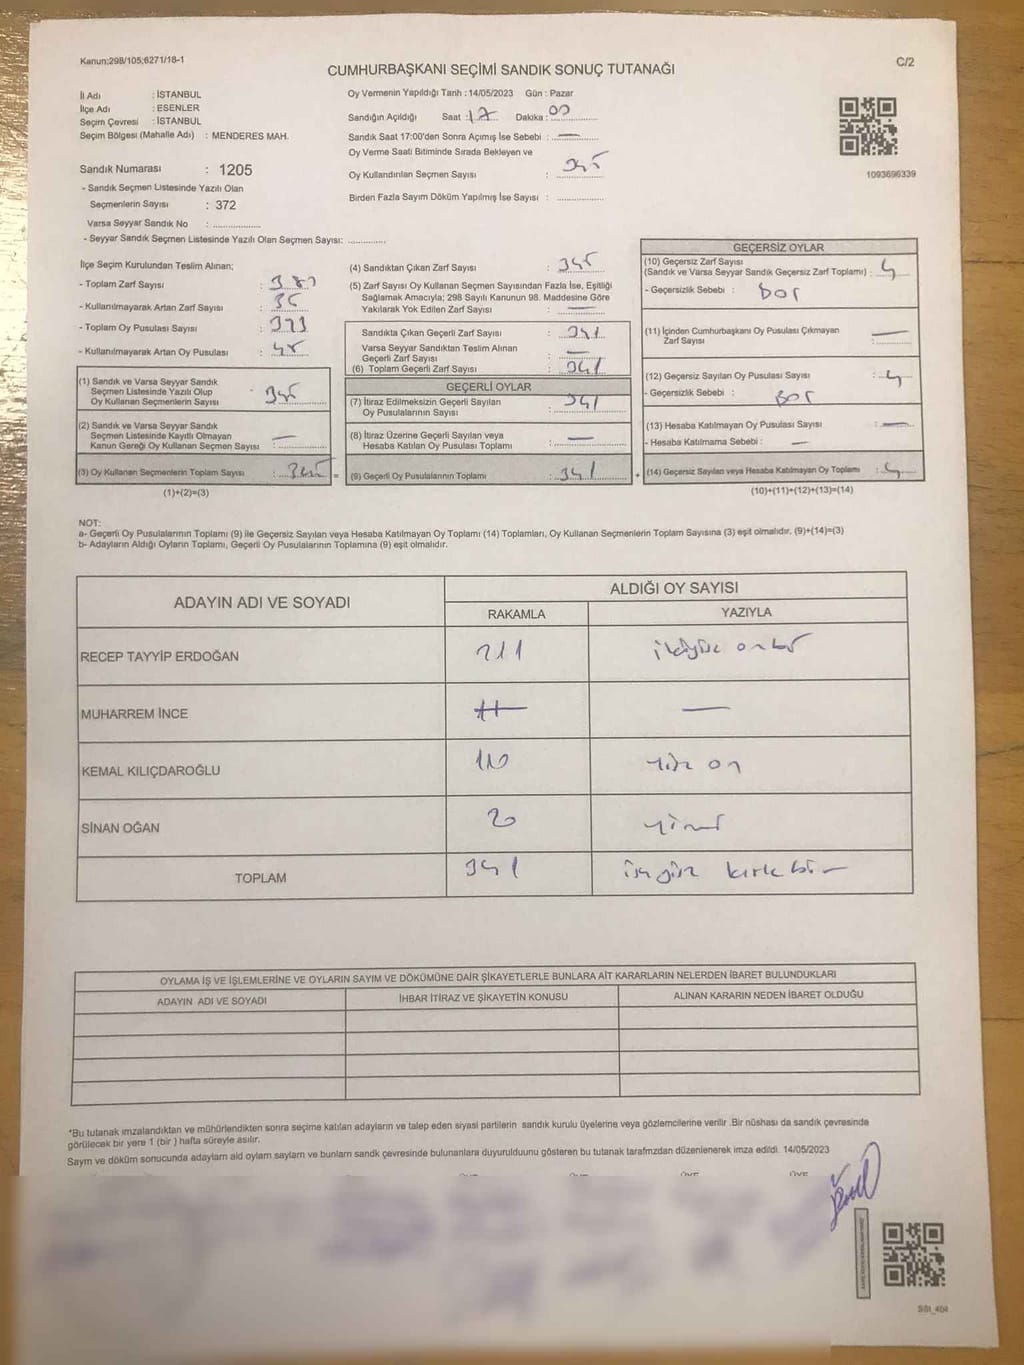 Kanun;298/105;6271/18-1
C/2
CUMHURBAŞKANI SEÇİMİ SANDIK SONUÇ TUTANAĞI
İl Adı : İSTANBUL
İlçe Adı : ESENLER
Seçim Çevresi : İSTANBUL
Seçim Bölgesi (Mahalle Adı) : MENDERES MAH.
Sandık Numarası : 1205
- Sandık Seçmen Listesinde Yazılı Olan
Seçmenlerin Sayısı : 372
Varsa Seyyar Sandık No :
- Seyyar Sandık Seçmen Listesinde Yazılı Olan Seçmen Sayısı:
Oy Vermenin Yapıldığı Tarih : 14/05/2023 Gün : Pazar
Sandığın Açıldığı Saat : 17 Dakika : 00
Sandık Saat 17:00'den Sonra Açımış İse Sebebi : —
Oy Verme Saati Bitiminde Sırada Bekleyen ve
Oy Kullandırılan Seçmen Sayısı : 345
Birden Fazla Sayım Döküm Yapılmış İse Sayısı :
1093696339
İlçe Seçim Kurulundan Teslim Alınan;
- Toplam Zarf Sayısı :
- Kullanılmayarak Artan Zarf Sayısı :
- Toplam Oy Pusulası Sayısı :
- Kullanılmayarak Artan Oy Pusulası :
(1) Sandık ve Varsa Seyyar Sandık
Seçmen Listesinde Yazılı Olup
Oy Kullanan Seçmenlerin Sayısı : 345
(2) Sandık ve Varsa Seyyar Sandık
Seçmen Listesinde Kayıtlı Olmayan
Kanun Gereği Oy Kullanan Seçmen Sayısı : —
(3) Oy Kullanan Seçmenlerin Toplam Sayısı : 345
(1)+(2)=(3)
(4) Sandıktan Çıkan Zarf Sayısı : 345
(5) Zarf Sayısı Oy Kullanan Seçmen Sayısından Fazla İse, Eşitliği
Sağlamak Amacıyla; 298 Sayılı Kanunun 98. Maddesine Göre
Yakılarak Yok Edilen Zarf Sayısı : —
Sandıkta Çıkan Geçerli Zarf Sayısı : 341
Varsa Seyyar Sandıktan Teslim Alınan
Geçerli Zarf Sayısı : —
(6) Toplam Geçerli Zarf Sayısı : 341
GEÇERLİ OYLAR
(7) İtiraz Edilmeksizin Geçerli Sayılan
Oy Pusulalarının Sayısı : 341
(8) İtiraz Üzerine Geçerli Sayılan veya
Hesaba Katılan Oy Pusulası Toplamı : —
= (9) Geçerli Oy Pusulalarının Toplamı : 341
GEÇERSİZ OYLAR
(10) Geçersiz Zarf Sayısı
(Sandık ve Varsa Seyyar Sandık Geçersiz Zarf Toplamı) : 4
- Geçersizlik Sebebi :
(11) İçinden Cumhurbaşkanı Oy Pusulası Çıkmayan
Zarf Sayısı : —
(12) Geçersiz Sayılan Oy Pusulası Sayısı : 4
- Geçersizlik Sebebi :
(13) Hesaba Katılmayan Oy Pusulası Sayısı : —
- Hesaba Katılmama Sebebi : —
+ (14) Geçersiz Sayılan veya Hesaba Katılmayan Oy Toplamı : 4
(10)+(11)+(12)+(13)=(14)
NOT:
a- Geçerli Oy Pusulalarının Toplamı (9) ile Geçersiz Sayılan veya Hesaba Katılmayan Oy Toplamı (14) Toplamları, Oy Kullanan Seçmenlerin Toplam Sayısına (3) eşit olmalıdır. (9)+(14)=(3)
b- Adayların Aldığı Oyların Toplamı, Geçerli Oy Pusulalarının Toplamına (9) eşit olmalıdır.
ADAYIN ADI VE SOYADI ALDIĞI OY SAYISI
RAKAMLA YAZIYLA
RECEP TAYYİP ERDOĞAN 211 ikiyüz onbir
MUHARREM İNCE — —
KEMAL KILIÇDAROĞLU 110 yüz on
SİNAN OĞAN 20 yirmi
TOPLAM 341 üçyüz kırk bir
OYLAMA İŞ VE İŞLEMLERİNE VE OYLARIN SAYIM VE DÖKÜMÜNE DAİR ŞİKAYETLERLE BUNLARA AİT KARARLARIN NELERDEN İBARET BULUNDUKLARI
ADAYIN ADI VE SOYADI İHBAR İTİRAZ VE ŞİKAYETİN KONUSU ALINAN KARARIN NEDEN İBARET OLDUĞU
*Bu tutanak imzalandıktan ve mühürlendikten sonra seçime katılan adayların ve talep eden siyasi partilerin sandık kurulu üyelerine veya gözlemcilerine verilir .Bir nüshası da sandık çevresinde
görülecek bir yere 1 (bir ) hafta süreyle asılır.
Sayım ve döküm sonucunda adayların ald oylarn saylarn ve bunlarn sandk çevresinde bulunanlara duyurulduunu gösteren bu tutanak tarafmzdan düzenlenerek imza edildi. 14/05/2023